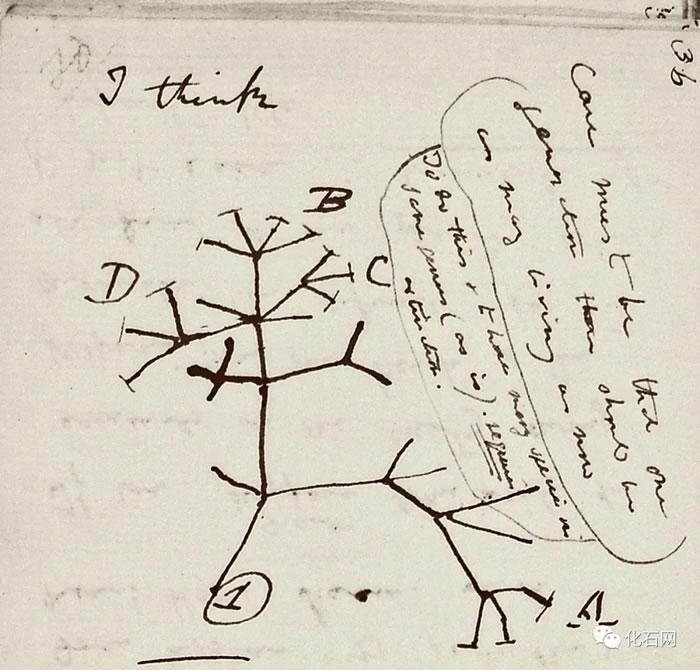 36
I think
Case must be that one
generation then should be
as many living as now
To do this & to have many species in
same genus (as is). requires
extinction.
B
D
C
A
1
化石网